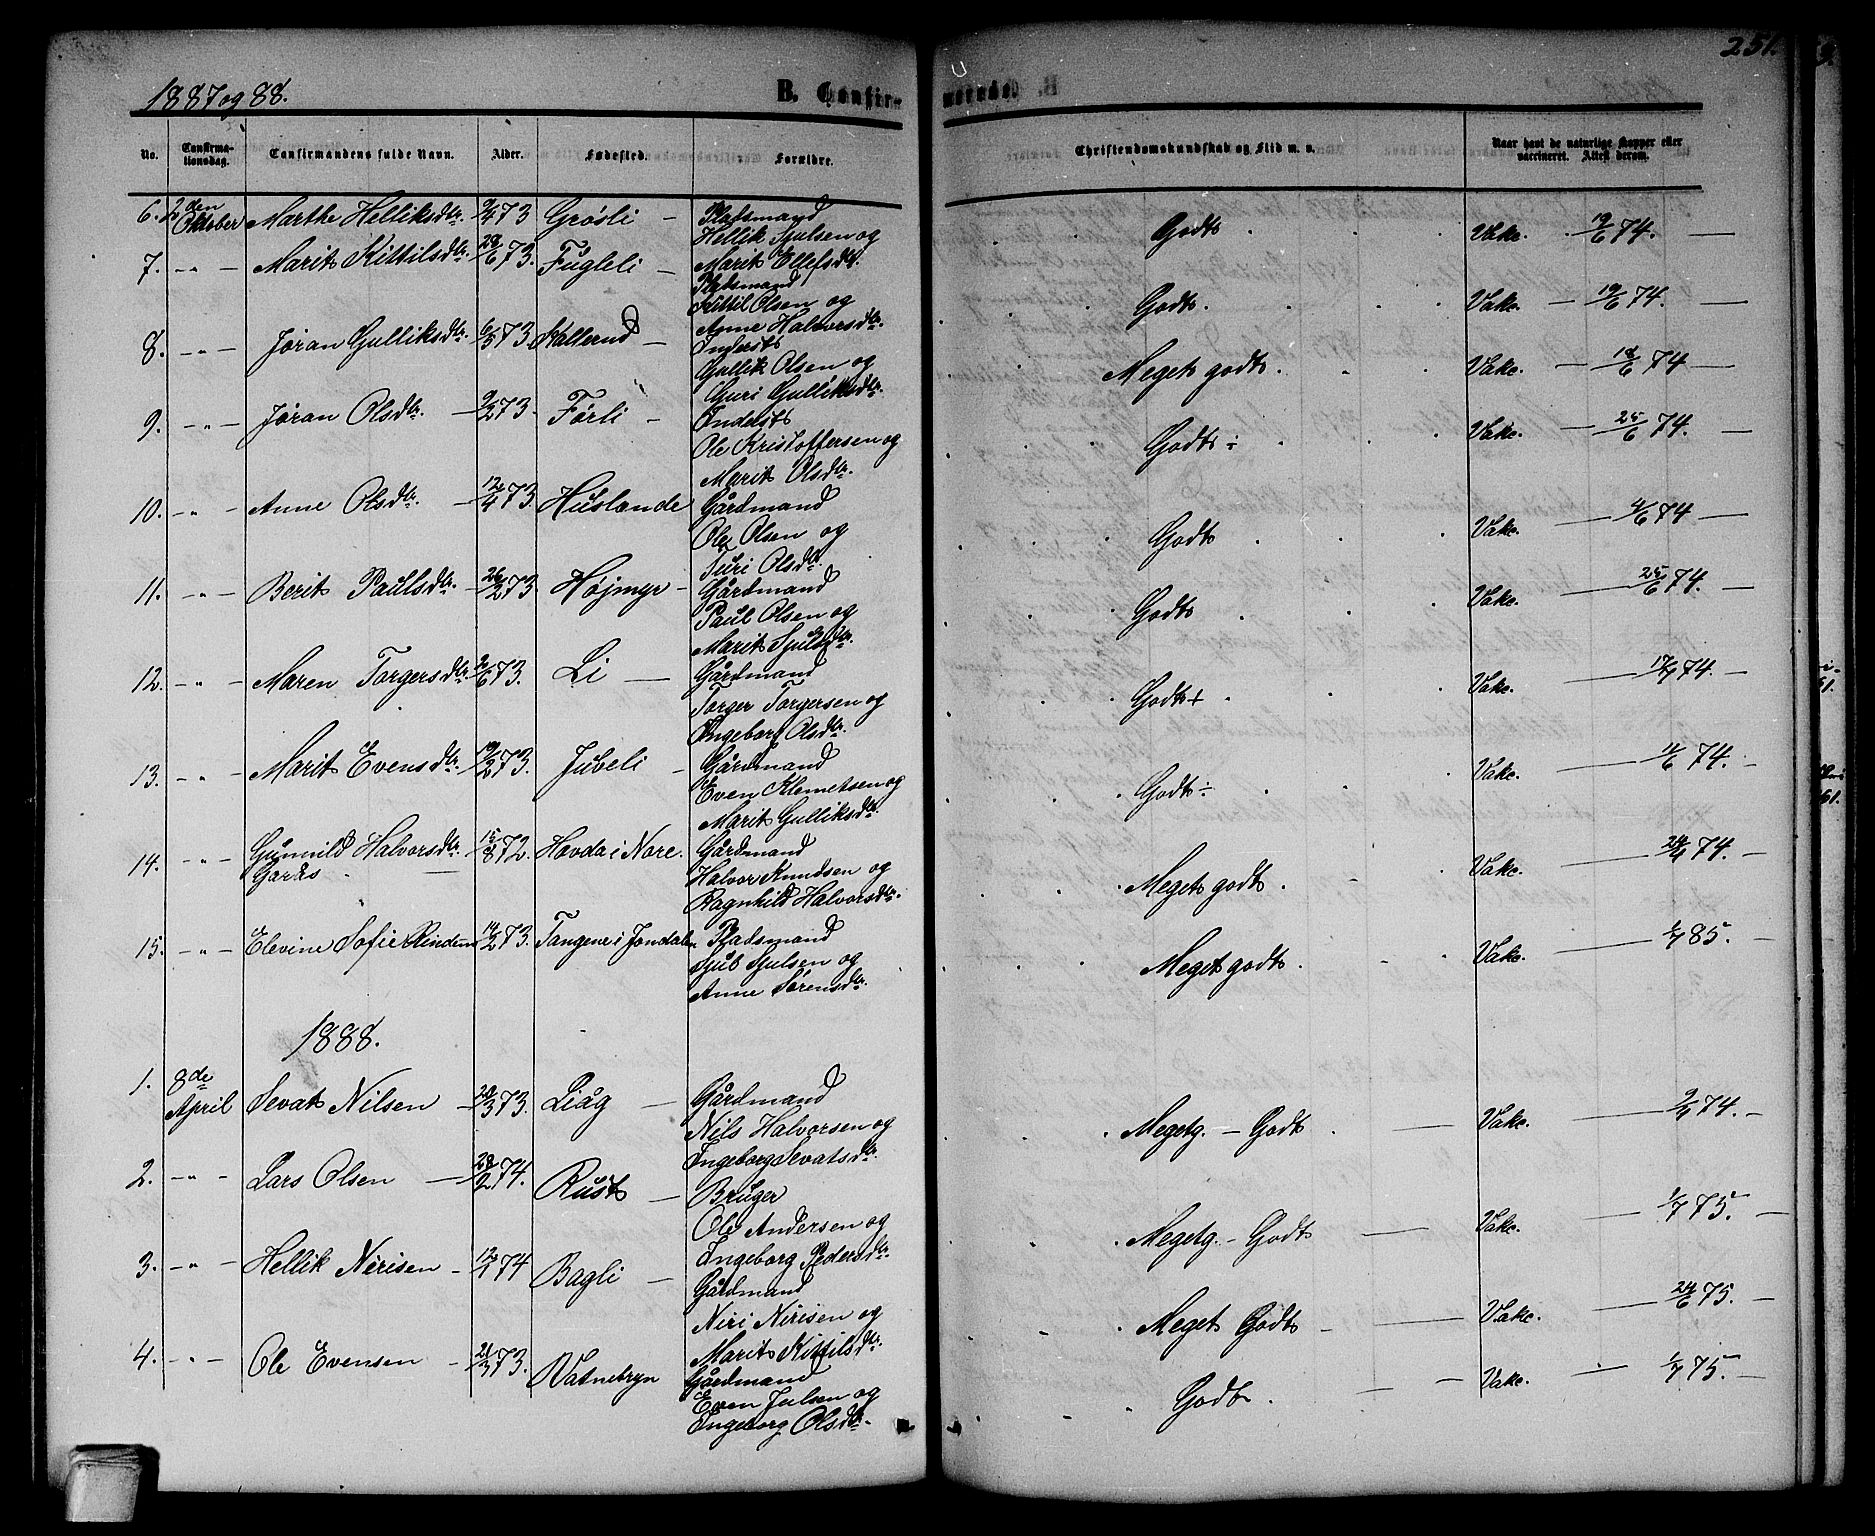 1887 og 88.
B. Confir-
merede
251.
No.
Confirma-
tionsdag.
Confirmandens fulde Navn.
Alder.
Fødested.
Forældre.
Christendomskundskab og Flid m. v.
Naar havt de naturlige Kopper eller
vaccineret. Attest derom.
6. 2den Oktober Marthe Helliksdtr. 2/4 73 Grøsli – Pladsmand
Hellik Sjulsen og
Marit Ellefsdtr.
Godt Vakc. 19/6 74.
7. –"– Marit Kittilsdtr. 28/6 73. Fugleli – Pladsmand
Kittil Olsen og
Anne Halvorsdtr.
Godt. Vakc. – 19/6 74.
8. –"– Jøran Gulliksdtr. 6/5 73. Skallerud – Inderst
Gullik Olsen og
Guri Gulliksdtr.
Meget godt. Vakc. – 18/6 74
9. –"– Jøran Olsdtr. – 9/2 73. Førli – Inderst
Ole Kristoffersen og
Marit Olsdtr.
Godt ÷ Vakc. – 25/6 74.
10. –"– Anne Olsdtr. – 12/4 73. Huslande Gårdmand
Ole Olsen og
Turi Olsdtr.
Godt Vakc. – 4/6 74
11. –"– Berit Paulsdtr. – 26/2 73 Højmyr – Gårdmand
Paul Olsen og
Marit Sjulsdtr.
Godt Vakc. – 25/6 74.
12. –"– Maren Torgersdtr. 2/6 73. Li – Gårdmand
Torger Torgersen og
Ingeborg Olsdtr.
Godt + Vakc. – 17/7 74.
13. –"– Marit Evensdtr. 19/2 73. Juveli – Gårdmand
Even Klemetsen og
Marit Gulliksdtr.
Godt ÷ Vakc. – 11/6 74.
14. –"– Gunvild Halvorsdtr. 15/8 72. Hovda i Nore. Gårdmand
Halvor Knudsen og
Ragnhild Halvorsdtr.
Meget godt. Vakc. – 74.
15. –"– Elevine Sofie 14/2 73. Tangene i Jondalen Pladsmand
Sjul Sjulsen og
Anne Sørensdtr.
Meget godt. Vakc. – 1/7 85.
1888.
1. 8de April Sevat Nilsen – 20/3 73. Liåg – Gårdmand
Nils Halvorsen og
Ingeborg Sevatsdtr.
Megetg. – Godt Vakc. – 74.
2. –"– Lars Olsen – 28/2 74. Rust – Bruger
Ole Andersen og
Ingeborg Pedersdtr.
Megetg. – Godt Vakc. – 1/7 75.
3. –"– Hellik Nirisen – 12/1 74 Bagli – Gårdmand
Niri Nirisen og
Marit Kittilsdtr.
Meget Godt – Vakc. – 24/6 75.
4. –"– Ole Evensen – 21/3 73. Vatnebryn Gårdmand
Even Julsen og
Ingeborg Olsdtr.
Godt. Vakc. – 1/7 75.